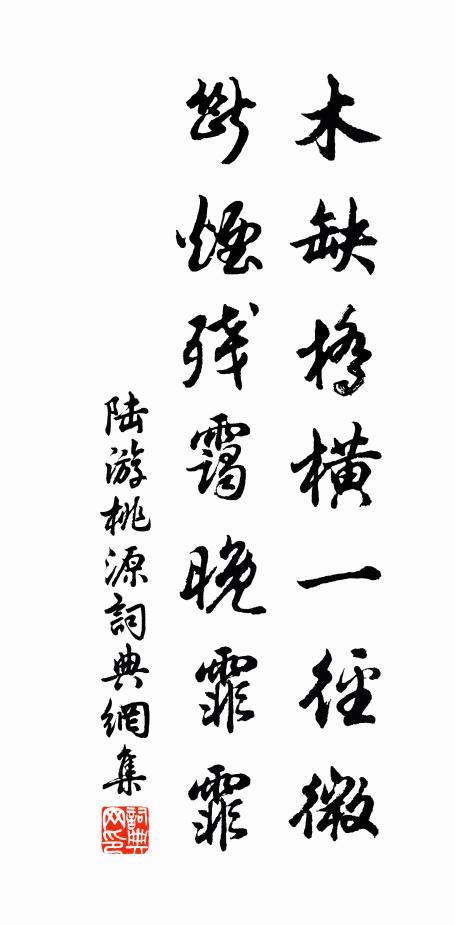 木缺橋橫一徑微
斷煙殘靄晚霏霏
陸游桃源詞典網集
詞典网印